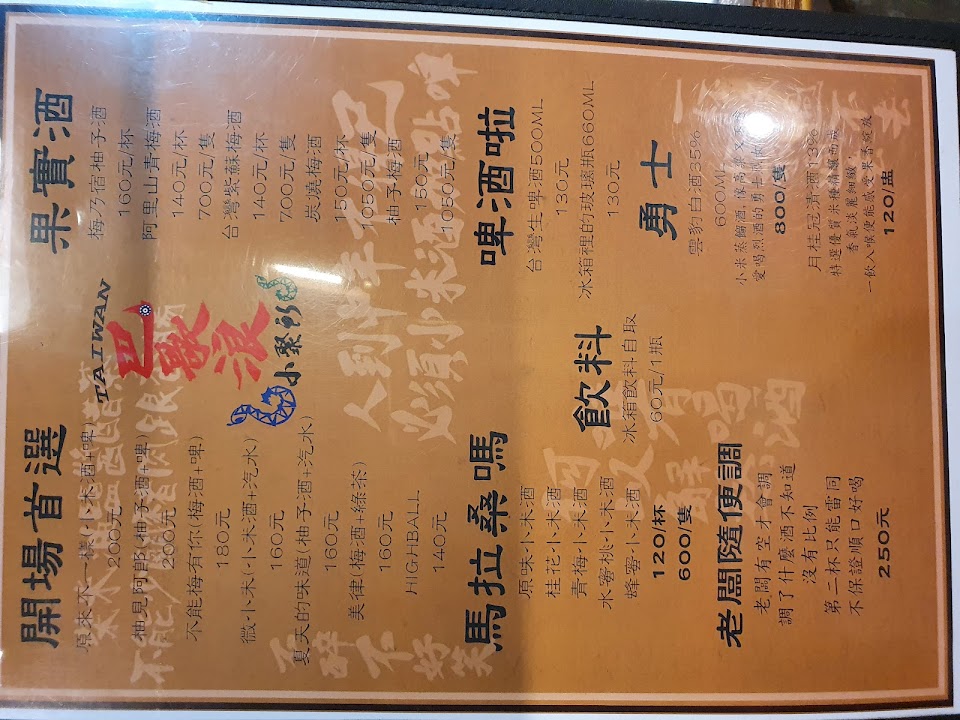 TAIWAN
巴歌浪
小聚所
開場首選
原來不一樣(小米酒+啤)
200元
柚見阿郎(柚子酒+啤)
200元
不能梅有你(梅酒+啤)
180元
微小米(小米酒+汽水)
160元
夏天的味道(柚子酒+汽水)
160元
美律(梅酒+綠茶)
160元
HIGHBALL
140元
果實酒
梅乃宿柚子酒
160元/杯
阿里山青梅酒
140元/杯
700元/隻
台灣紫蘇梅酒
140元/杯
700元/隻
炭燒梅酒
150元/杯
1050元/隻
柚子梅酒
150元/杯
1050元/隻
馬拉桑嗎
原味小米酒
桂花小米酒
青梅小米酒
水蜜桃小米酒
蜂蜜小米酒
120/杯
600/隻
飲料
冰箱飲料自取
60元/1瓶
啤酒啦
台灣生啤酒500ML
130元
冰箱裡的玻璃瓶660ML
130元
老闆隨便調
老闆有空才會調
調了什麼酒不知道
沒有比例
第二杯只能雷同
不保證順口好喝
250元
勇士
雲豹白酒35%
600ML
小米蒸餾酒
愛喝烈酒的勇士
800/隻
月桂冠清酒13%
特選優質米種精釀而成
香氣淡麗細緻，
一飲入喉便能感受果香綻放
120/盅
人到
必須小米酒
不醉不好笑